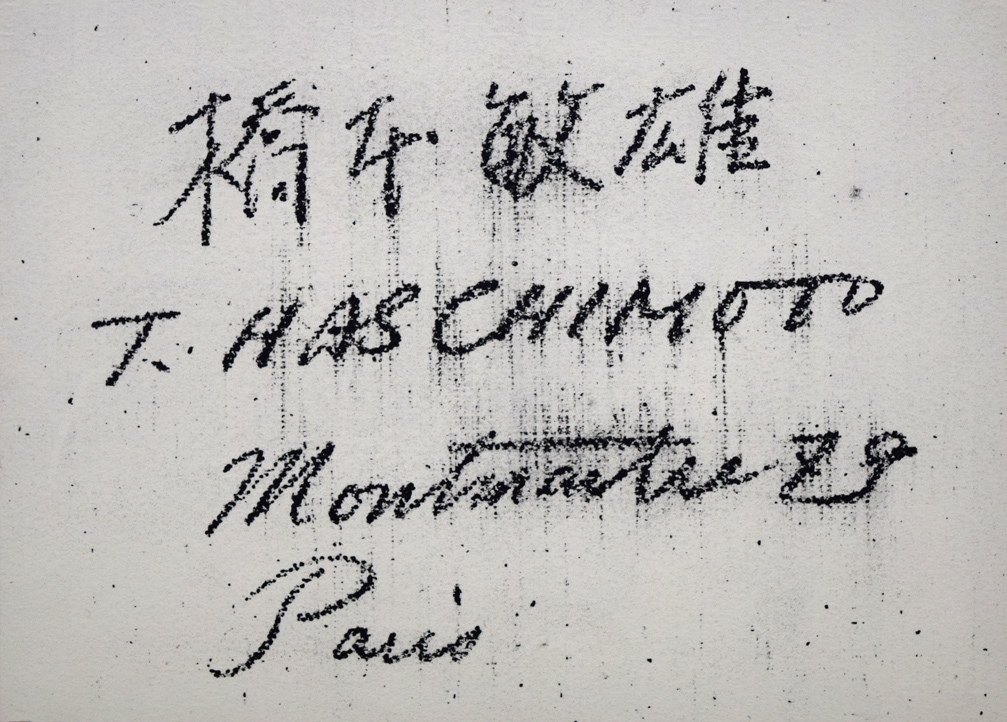 橋本敏雄
T. HASCHIMOTO
Montmartre 29
Paris